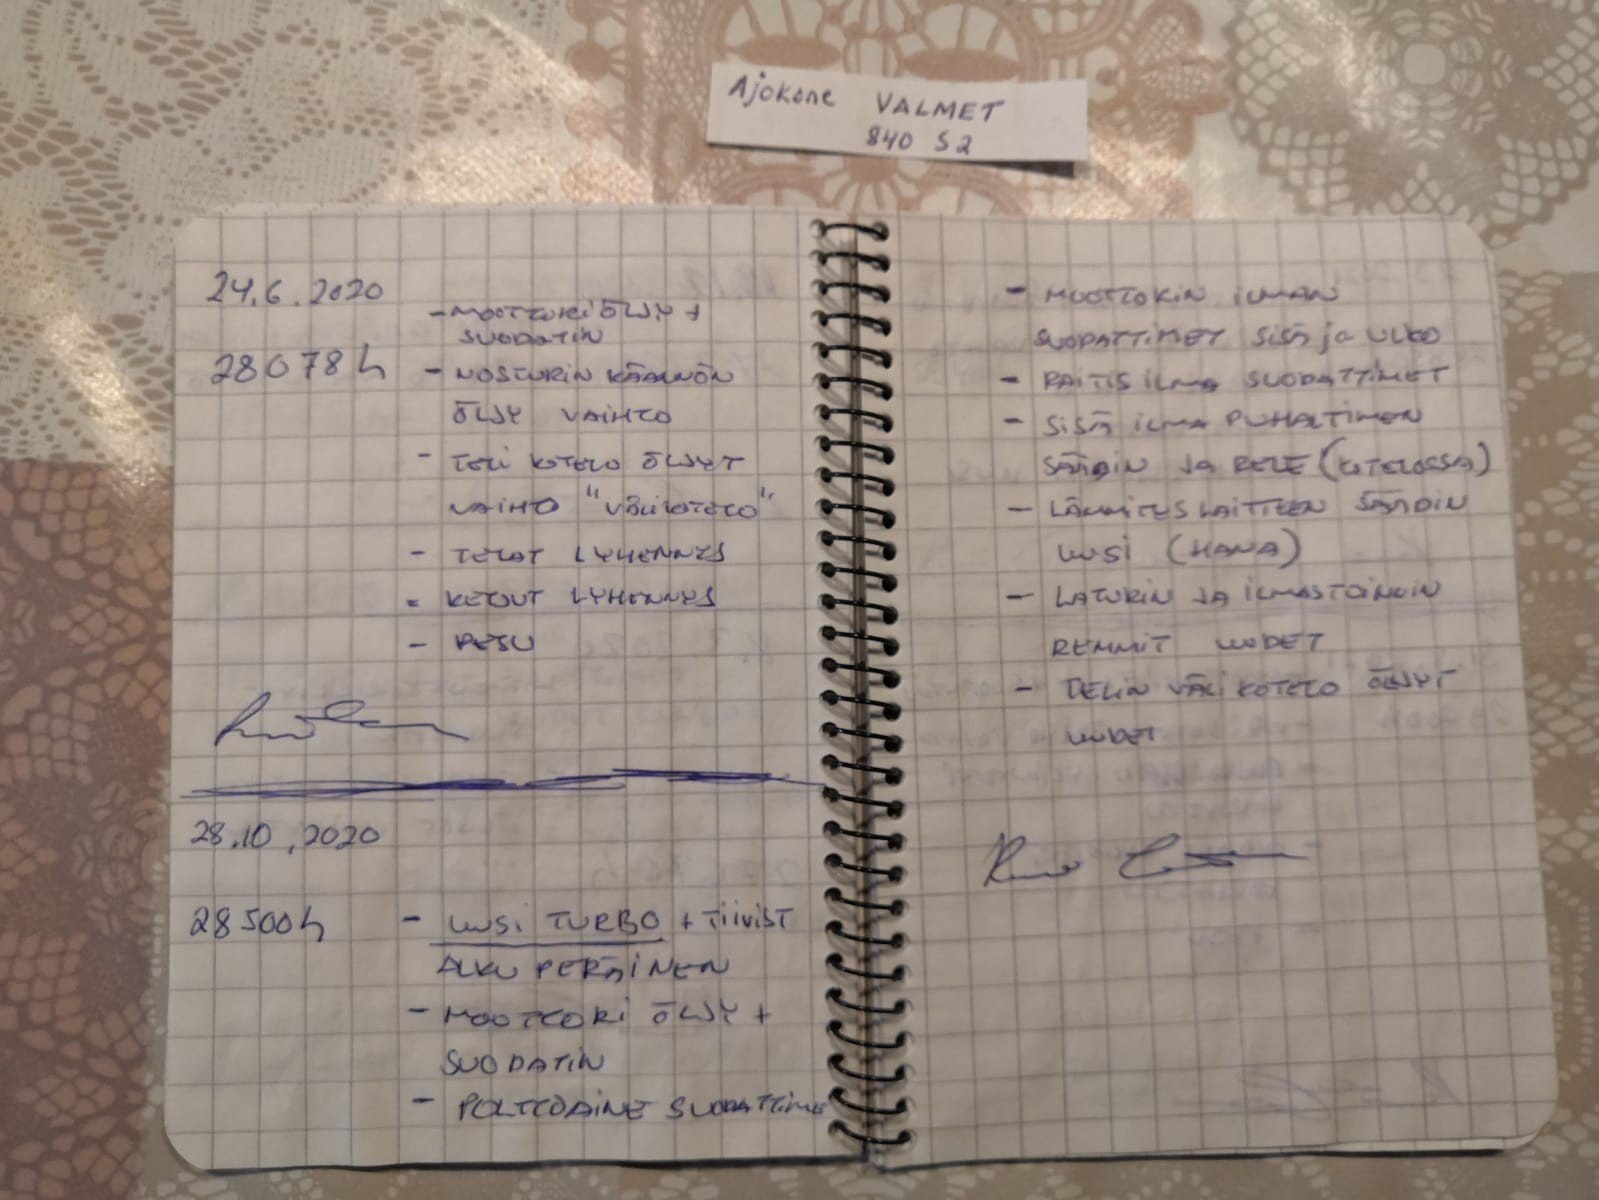 Ajokone VALMET
840 S2
24.6.2020
- MOOTTORI ÖLJY +
SUODATIN
28078 h
- NOSTURIN KÄÄNNÖN
ÖLJY VAIHTO
- TELI KOTELO ÖLJYT
VAIHTO "VÄLIKOTELO"
- TELAT LYHENNYS
- KETJUT LYHENNYS
- PESU
28.10.2020
28500 h
- UUSI TURBO + TIIVIST
ALKU PERÄINEN
- MOOTTORI ÖLJY +
SUODATIN
- POLTTOAINE SUODATTIME
- MOOTTORIN ILMAN
SUODATTIMET SISÄ ja ULKO
- RAITIS ILMA SUODATTIMET
- SISÄ ILMA PUHALTIMEN
SÄÄDIN JA RELE (KOTELOSSA)
- LÄMMITYS LAITTEEN SÄÄDIN
UUSI (HANA)
- LATURIN JA ILMASTOINNIN
REMMIT UUDET
- TELIN VÄLI KOTELO ÖLJYT
UUDET